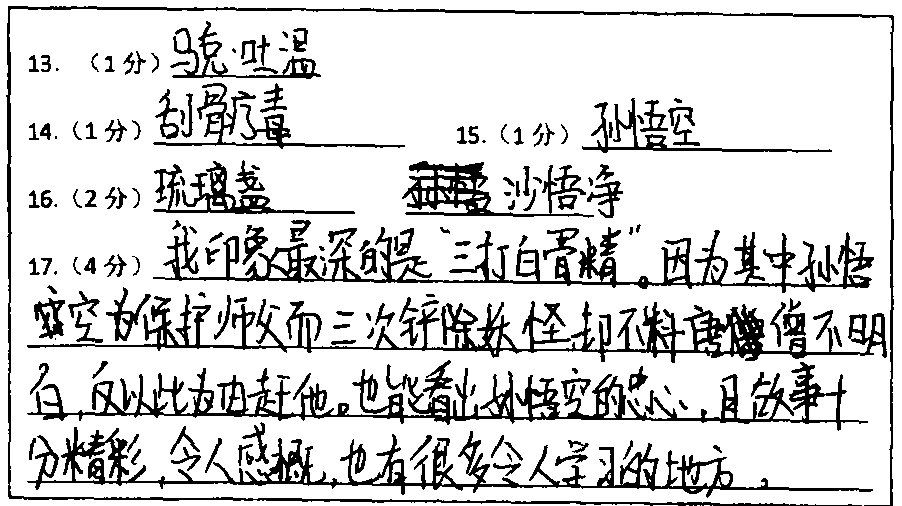 13. （1分）马克·吐温
14.（1分）刮骨疗毒 15.（1分）孙悟空
16.（2分）琉璃盏 沙悟净
17.（4分）我印象最深的是“三打白骨精”。因为其中孙悟
空为保护师父而三次铲除妖怪,却不料唐僧不明
白,反以此为由赶他。也能看出孙悟空的忠心,且故事十
分精彩,令人感概,也有很多令人学习的地方。